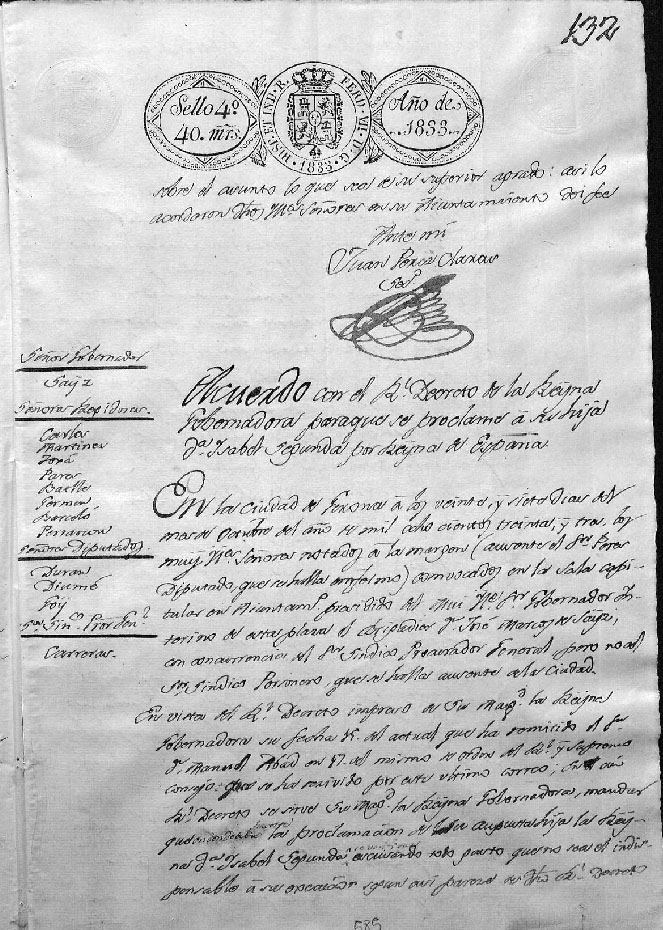 132
Sello 4º
40. mrs.
HISP. ET IND. R. FERD. VII. D. G.
1833
Año de
1833.
sobre el asunto lo que sea de su superior agrado: asi lo
acordaron dhos Mes Señores en su Aiuntamiento doi fee
Ante mi
Juan Perez Claras
Señor Gobernador
Sayz
Señores Regidores
Carles
Martinez
Pararols
Barceló
Señores Diputados
Duran
Foy
Carreras.
Acuerdo con el Rl. Decreto de la Reyna
Gobernadora paraque se proclame à su hija
dª. Isabel Segunda por Reyna de España.
En la ciudad de Gerona à los veinte, y siete dias del
mes de Octubre del año de mil ocho cientos treinta, y tres, los
muy Ites Señores notados à la margen (ausente el Sr Peres
Diputado, que se halla enfermo) convocados en la Sala capi-
tular en Aiuntamto, presidido del Mui Ite Sr Gobernador In-
terino de esta plaza el Brigadier Dn José Marcos de Sayz,
con concurrencia del Sr Sindico Procurador General, pero no del
Sr Sindico Personero, que se halla ausente de la Ciudad.
En vista del Rl. Decreto impreso de Su Magd. la Reyna
Gobernadora su fecha del actual que ha remitido el Sr
Dn Manuel Abad en 17 del mismo de orden del Rl. y Supremo
consejo: que se ha recivido por este ultimo correo,
Rl. Decreto se sirve Su Magd. la Reyna Gobernadora, mandar
que la proclamacion de su augusta hija la Rey-
na Dª. Isabel Segunda, escusando todo gasto que no sea el indis-
pensable à su egecucion segun asi parece de dho Rl. Decreto
585